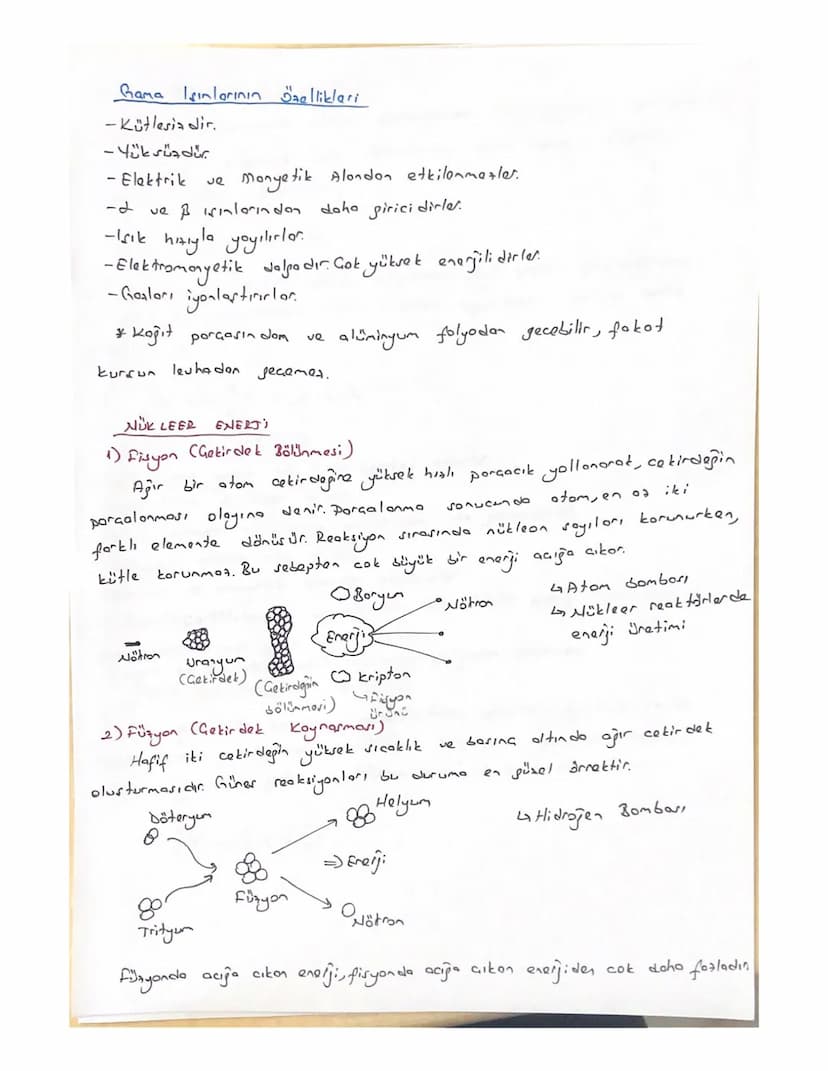 Gama Işınlarının Özellikleri
-Kütlesizdir.
-Yüksüzdür.
-Elektrik ve Manyetik Alandan etkilenmezler.
-α ve β ışınlarından daha giricidirler.
-Işık hızıyla yayılırlar.
-Elektromanyetik dalgadır. Çok yüksek enerjilidirler.
-Gazları iyonlaştırırlar.
* Kağıt parçasından ve alüminyum folyodan geçebilir, fakat
kurşun levhadan geçemez.
NÜKLEER ENERJİ
1) Fisyon (Çekirdek Bölünmesi)
Ağır bir atom çekirdeğine yüksek hızlı parçacık yollanarak, çekirdeğin
parçalanması olayına denir. Parçalanma sonucunda atom, en az iki
farklı elemente dönüşür. Reaksiyon sırasında nükleon sayıları korunurken,
kütle korunmaz. Bu sebepten çok büyük bir enerji açığa çıkar.
Baryum
Nötron
↳ Atom bombası
↳ Nükleer reaktörlerde
enerji üretimi
Enerji
Nötron
Uranyum
(Çekirdek)
(Çekirdeğin
bölünmesi)
Kripton
↳ Fisyon
ürünü
2) Füzyon (Çekirdek Kaynaşması)
Hafif iki çekirdeğin yüksek sıcaklık ve basınç altında ağır çekirdek
oluşturmasıdır. Güneş reaksiyonları bu duruma en güzel örnektir.
Döteryum
Helyum
↳ Hidrojen Bombası
⇒ Enerji
Füzyon
Trityum
Nötron
Füzyonda açığa çıkan enerji, fisyonda açığa çıkan enerjiden çok daha fazladır.